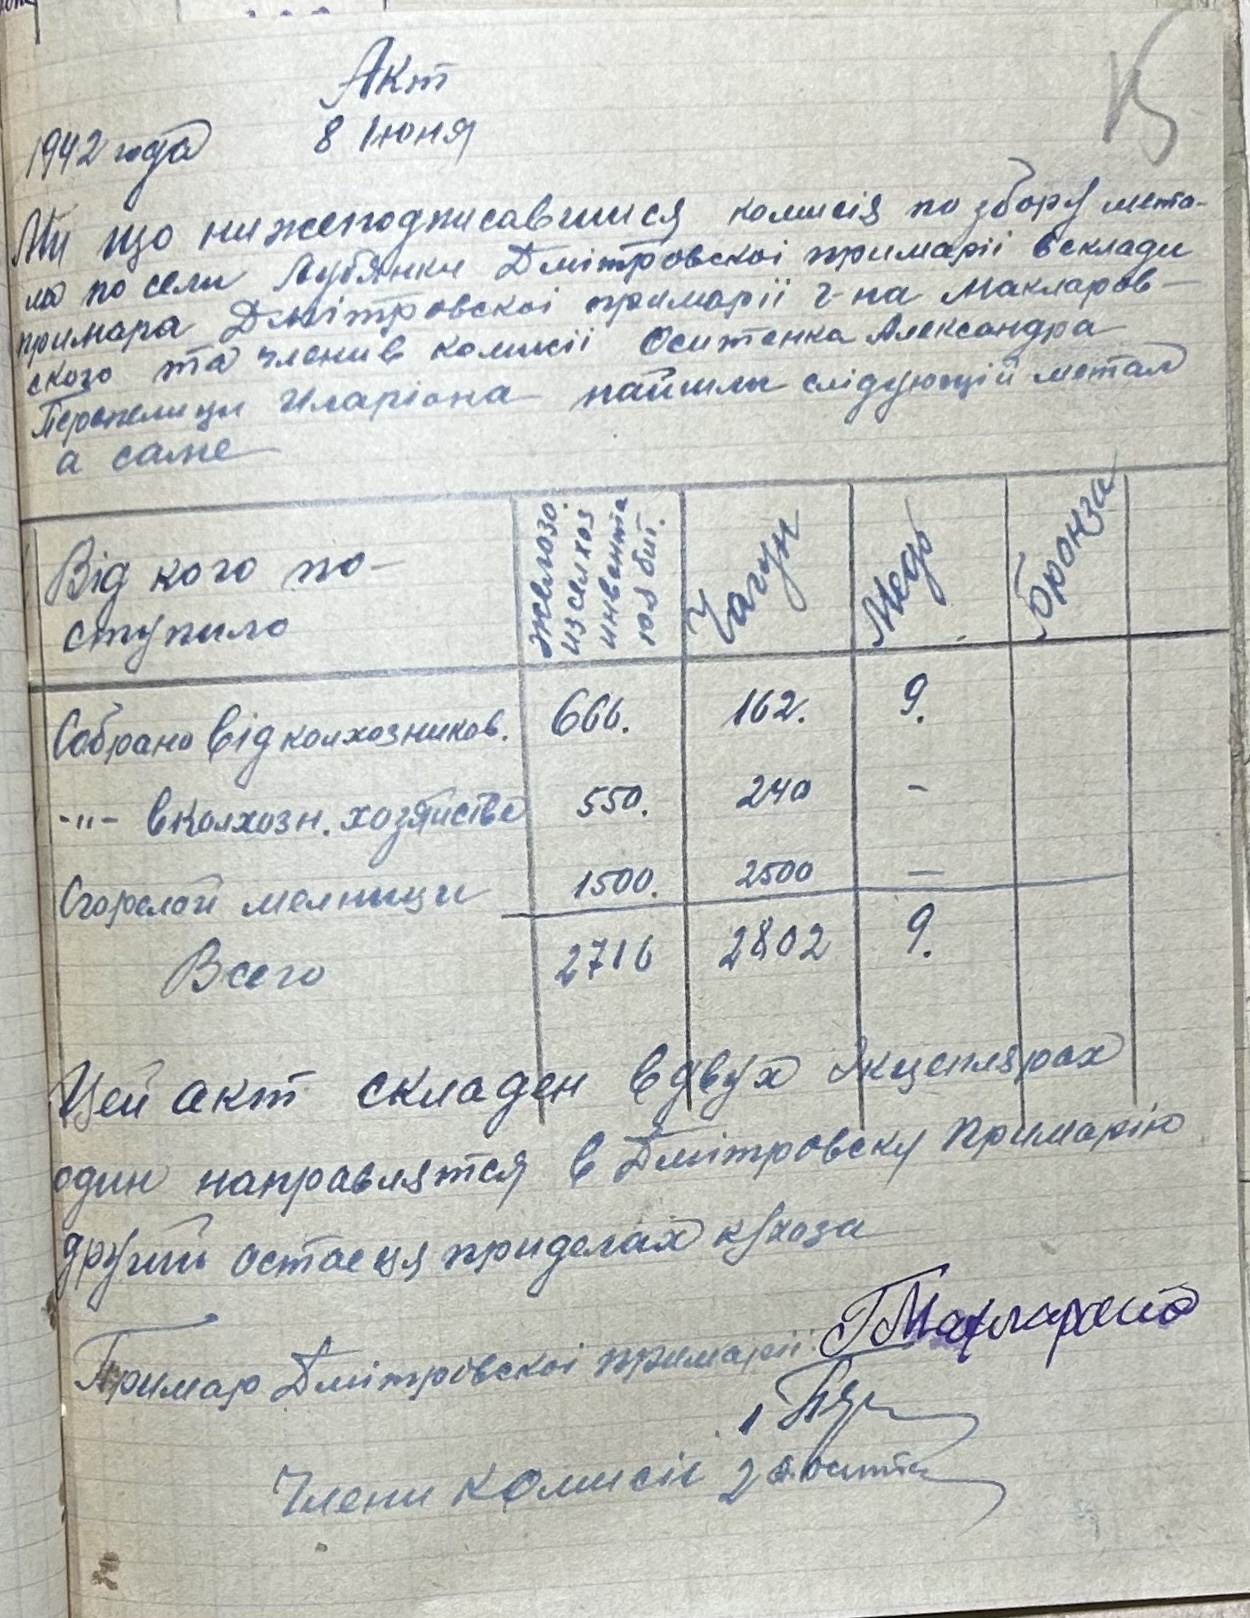 Акт
1942 года 8 Июня
Ми що нижеподписавшися комисія по збору мета-
ла по сели Лубянки Дмітровскоі примаріі в склади
примара Дмітровскоі примаріі г-на Макларов-
ского та членив комисіі Оситенка Александра
Перепелици Иларіона найшли слідующій метал
а саме
Від кого по-
ступило
Железо
из селхоз
инвента
Чагун
Медь
Бронза
Собрано від колхозников. 666. 162. 9.
-"- в колхозн. хозяйстве 550. 240 -
Сгорелой мелници 1500. 2500 —
Всего 2716 2802 9.
Цей акт складен в двух экцеплярах
один направлятся в Дмітровску Примарію
другий остаеця при делах к/хоза
Примар Дмітровскоі примаріі
1
Члени комисіі 2